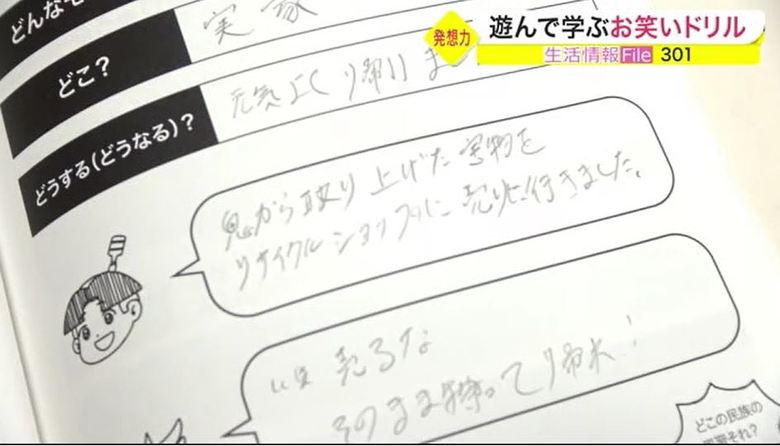 遊んで学ぶお笑いドリル
発想力
生活情報File 301
実家
どこ?
元気よく
どうする(どうなる)?
鬼から取り上げた宝物を
リサイクルショップに売りに行きました。
売るな
そのまま持って帰れ!
どこの民族の